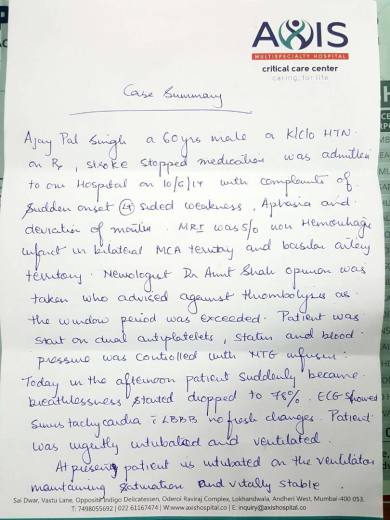 AXIS
MULTISPECIALITY HOSPITAL
critical care center
caring for life
Case Summary
Ajay Pal Singh a 60yrs male a K/C/O HTN
on Rx, stroke stopped medication was admitted
to our Hospital on 10/6/17 with complaints of
Sudden onset sided weakness, Aphasia and
deviation of mouth. MRI was s/o non Hemorrhagic
infarct in bilateral MCA territory and basilar artery
territory. Neurologist Dr Amit Shah opinion was
taken who advised against thrombolysis as
the window period was exceeded. Patient was
start on dual antiplatelets, statin and blood
pressure was controlled with NTG infusion.
Today in the afternoon patient suddenly became
breathlessness started dropped to 78%. ECG showed
Sinus tachycardia c̄ LBBB no fresh changes. Patient
was urgently intubated and ventilated.
At present patient is intubated on the ventilator
maintaining saturation and vitally stable.
Sai Dwar, Vastu Lane, Opposite Indigo Delicatessen, Oderoi Raviraj Complex, Lokhandwala, Andheri West, Mumbai-400 053.
T: 7498055692 | 022 61167474 | W:www.axishospital.co | E: inquiry@axishospital.co